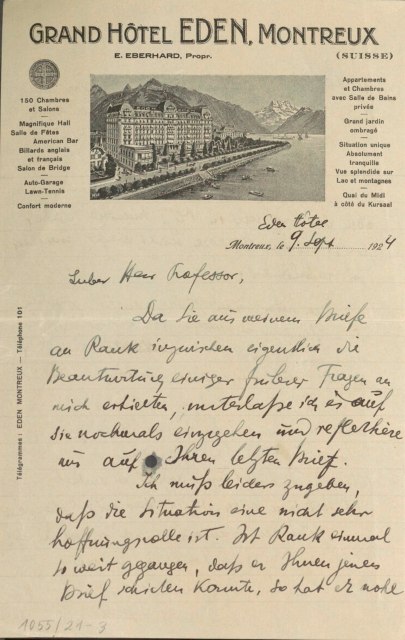 GRAND HÔTEL EDEN, MONTREUX
E. EBERHARD, Propr.
(SUISSE)
150 Chambres
et Salons
Magnifique Hall
Salle de Fêtes
American Bar
Billards anglais
et français
Salon de Bridge
Auto-Garage
Lawn-Tennis
Confort moderne
Appartements
et Chambres
avec Salle de Bains
privée
Grand jardin
ombragé
Situation unique
Absolument
tranquille
Vue splendide sur
Lac et montagnes
Quai du Midi
à côté du Kursaal
Eden Hotel
Montreux, le 9. Sept 1924
Lieber Herr Professor,
Da Sie aus meinem Briefe
an Rank inzwischen eigentlich die
Beantwortung einiger früherer Fragen an
mich erhielten, unterlaße ich es auf
sie nochmals einzugehen und reflektiere
nur auf Ihren letzten Brief.
Ich muß leider zugeben,
daß die Situation eine nicht sehr
hoffnungsvolle ist. Ist Rank einmal
so weit gegangen, daß er Ihnen jenen
Brief schicken konnte, so hat er wohl
Télégrammes: EDEN MONTREUX — Téléphone 101
1055/21-3